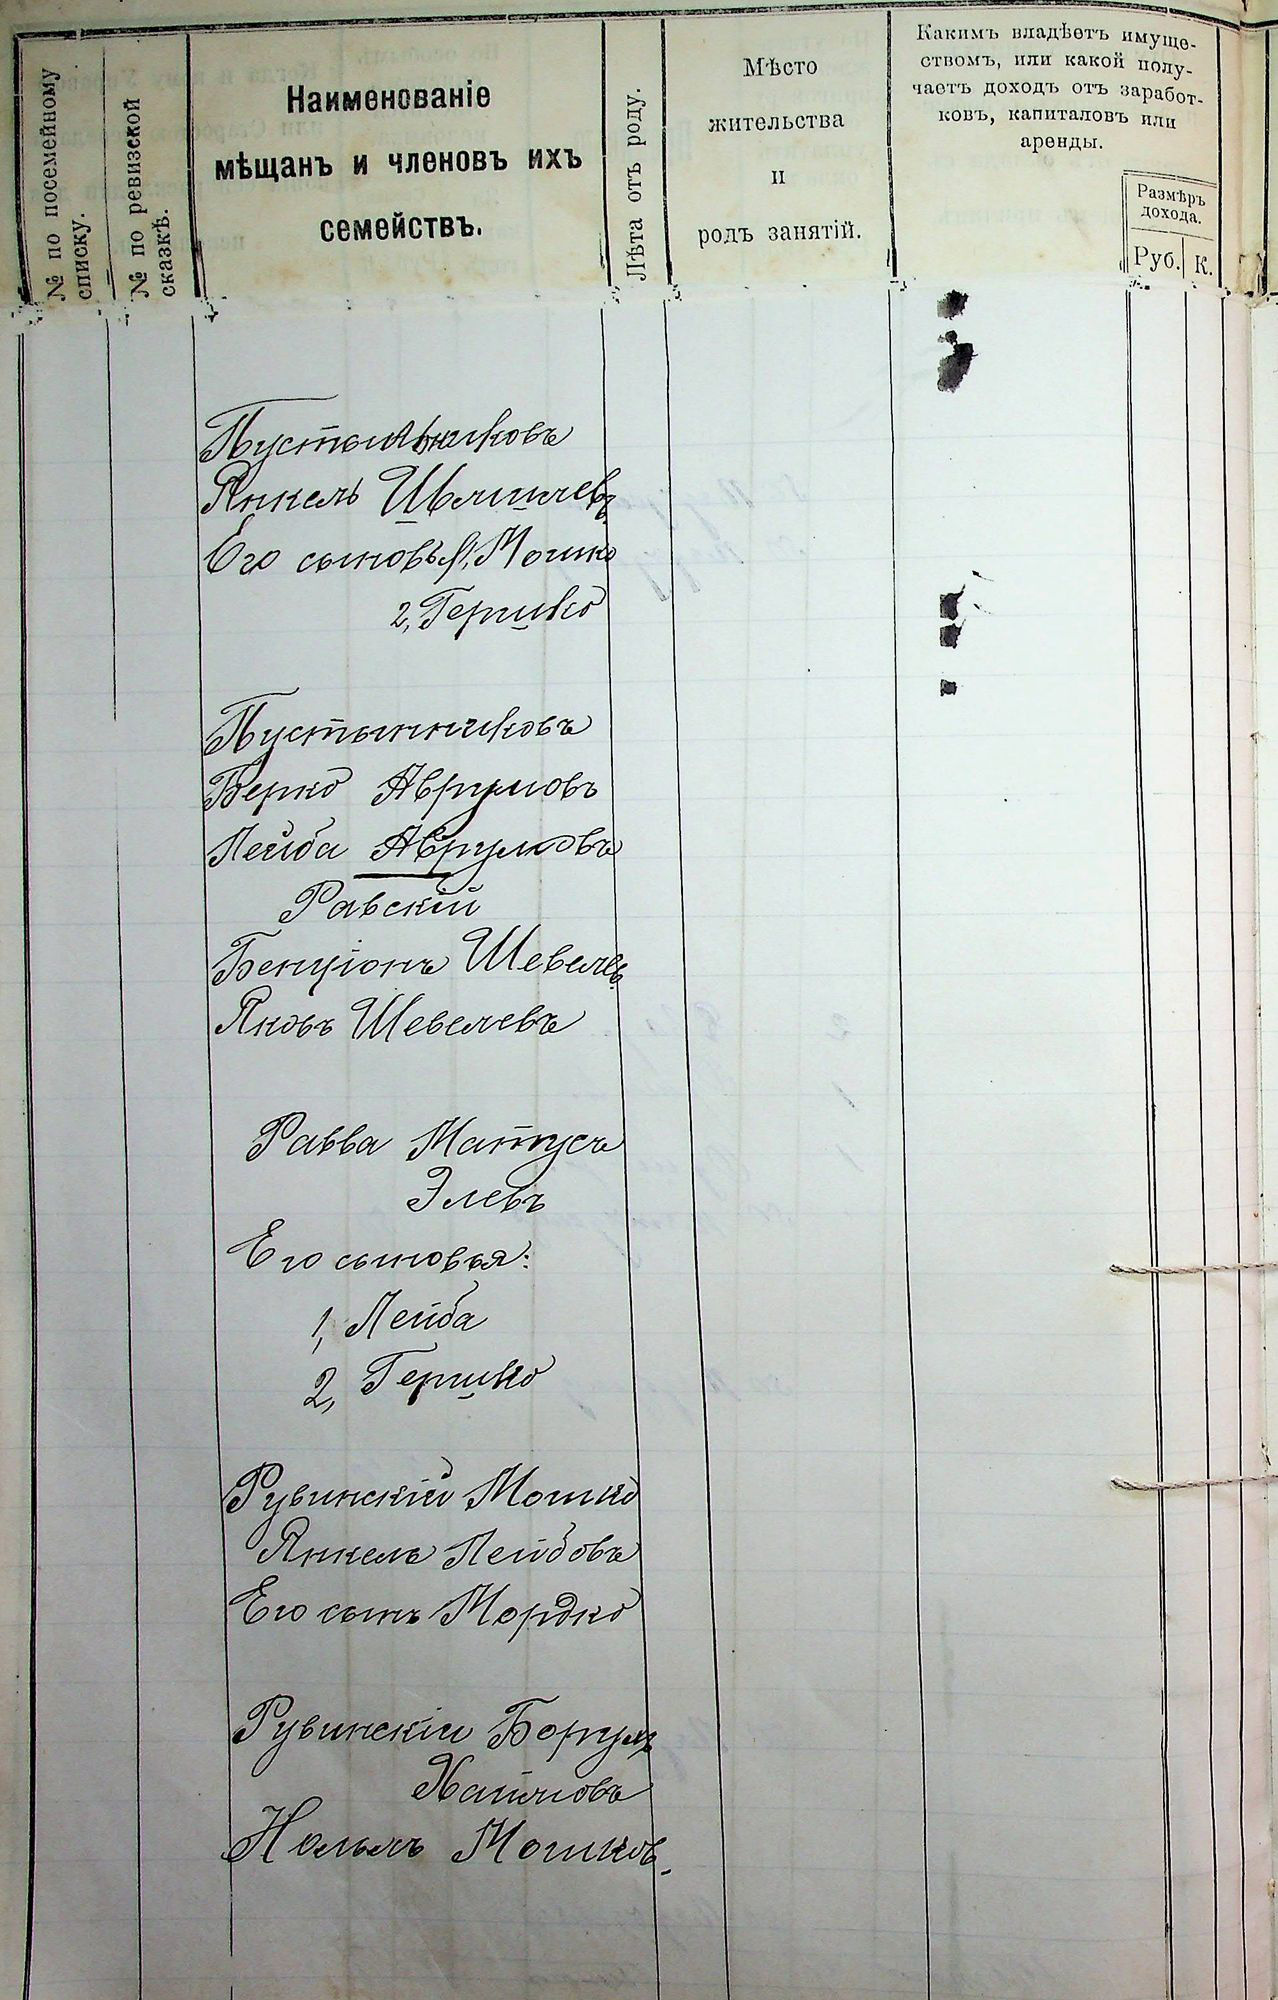 № по посемейному
списку.
№ по ревизской
сказкѣ.
Наименованіе
мѣщанъ и членовъ ихъ
семействъ.
Лѣта отъ роду.
Мѣсто
жительства
и
родъ занятій.
Какимъ владѣетъ имуще-
ствомъ, или какой полу-
чаетъ доходъ отъ заработ-
ковъ, капиталовъ или
аренды.
Размѣръ
дохода.
Руб. К.
Пустыльниковъ
Янкель
Его сыновья 1, Мошко
2, Гершко
Пустынниковъ
Берко Аврумовъ
Лейба Аврумовъ
Равскій
Бенціонъ Шевелев
Яковъ Шевелевъ
Равва Матусъ
Элевъ
Его сыновья:
1, Лейба
2, Гершко
Рувинскій Мошко
Янкель Лейбовъ
Его сынъ Мордко
Рувинскій Борухъ
Хаимовъ
Мошков.